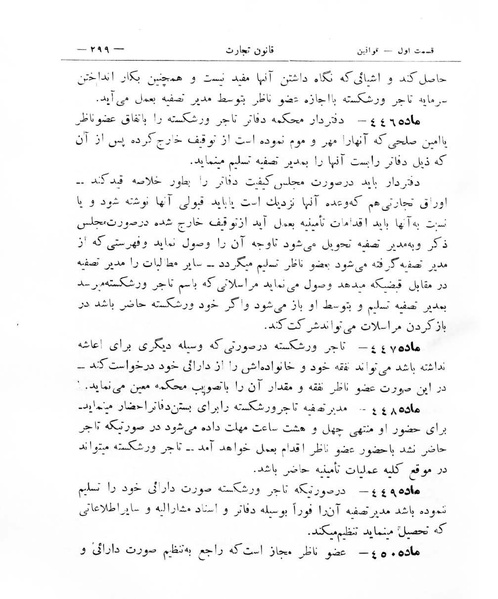 قسمت اول — قوانین
قانون تجارت
— ۲۹۹ —
حاصل کند و اشیائی‌که نگاه داشتن آنها مفید نیست و همچنین بکار انداختن
سرمایه تاجر ورشکسته بااجازه عضو ناظر بتوسط مدیر تصفیه بعمل می‌آید.
ماده۴۴۶ — دفتردار محکمه دفاتر تاجر ورشکسته را باتفاق عضوناظر
یاامین صلحی‌که آنهارا مهر و موم نموده است از توقیف خارج‌کرده پس از آن
که ذیل دفاتر رابست آنها را بمدیر تصفیه تسلیم مینماید.
دفتردار باید درصورت مجلس‌کیفیت دفاتر را بطور خلاصه قیدکند —
اوراق تجارتی‌هم که‌وعده آنها نزدیك است یاباید قبولی آنها نوشته شود و یا
نسبت به‌آنها باید اقدامات تأمینیه بعمل آید ازتوقیف خارج شده درصورت‌مجلس
ذکر وبه‌مدیر تصفیه تحویل می‌شود تاوجه آن را وصول نماید وفهرستی‌که از
مدیر تصفیه‌گرفته می‌شود بعضو ناظر تسلیم میگردد — سایر مطالبات را مدیرتصفیه
در مقابل قبضیکه میدهد وصول می‌نماید مراسلاتی که باسم تاجر ورشکسته‌میرسد
بمدیر تصفیه تسلیم و بتوسط او باز می‌شود واگر خود ورشکسته حاضر باشد در
بازکردن مراسلات می‌تواندشرکت‌کند.
ماده۴۴۷ — تاجر ورشکسته درصورتی‌که وسیله دیگری برای اعاشه
نداشته باشد می‌تواند نفقه خود و خانواده‌اش را از دارائی خود درخواست‌کند —
در این صورت عضو ناظر نفقه و مقدار آن را باتصویب محکمه معین می‌نماید.
ماده۴۴۸ — مدیرتصفیه تاجرورشکسته رابرای بستن‌دفاتراحضار مینماید—
برای حضور او منتهی چهل و هشت ساعت مهلت داده می‌شود در صورتیکه تاجر
حاضر نشد باحضور عضو ناظر اقدام بعمل خواهد آمد — تاجر ورشکسته میتواند
در موقع کلیه عملیات تأمینیه حاضر باشد.
ماده۴۴۹ — درصورتیکه تاجر ورشکسته صورت دارائی خود را تسلیم
ننموده باشد مدیرتصفیه آن‌را فوراً بوسیله دفاتر و اسناد مشارالیه و سایراطلاعاتی
که تحصیل مینماید تنظیم‌میکند.
ماده۴۵۰ — عضو ناظر مجاز است‌که راجع به‌تنظیم صورت دارائی و